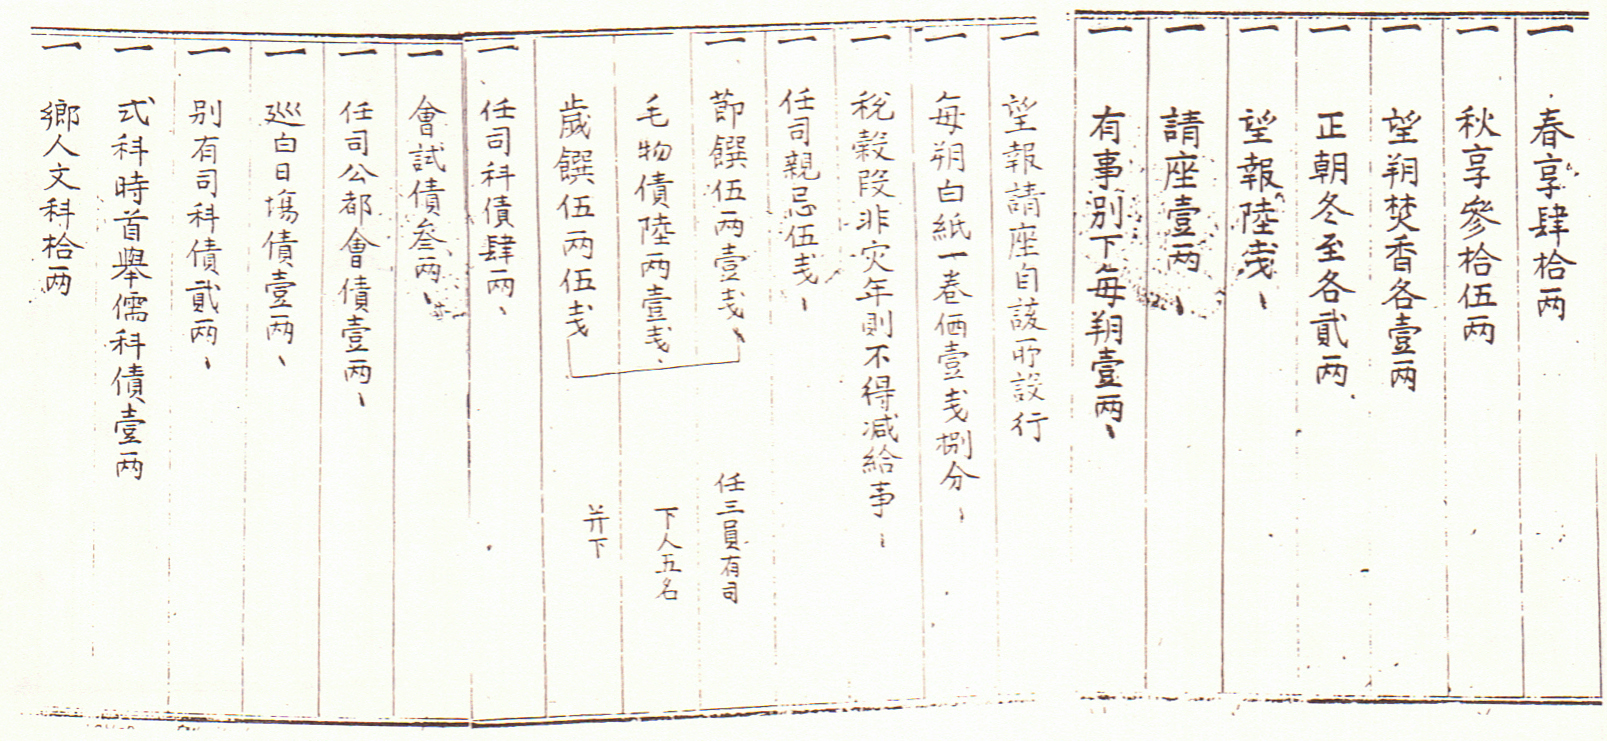 一 春享肆拾両
一 秋享參拾伍両
一 望朔焚香各壹両
一 正朝冬至各貳両
一 望報陸戔
一 請座壹両
一 有事別下每朔壹両
一 望報請座自該所設行
一 每朔白紙一卷価壹戔捌分
一 稅穀段非灾年則不得減給事
一 任司親忌伍戔
一 節饌伍両壹戔 任三員有司
毛物債陸両壹戔 下人五名
歲饌伍両伍戔 幷下
一 任司科債肆両
一 會試債叁両
一 任司公都會債壹両
一 巡白日塲債壹両
一 別有司科債貳両
一 式科時首舉儒科債壹両
一 鄉人文科拾両